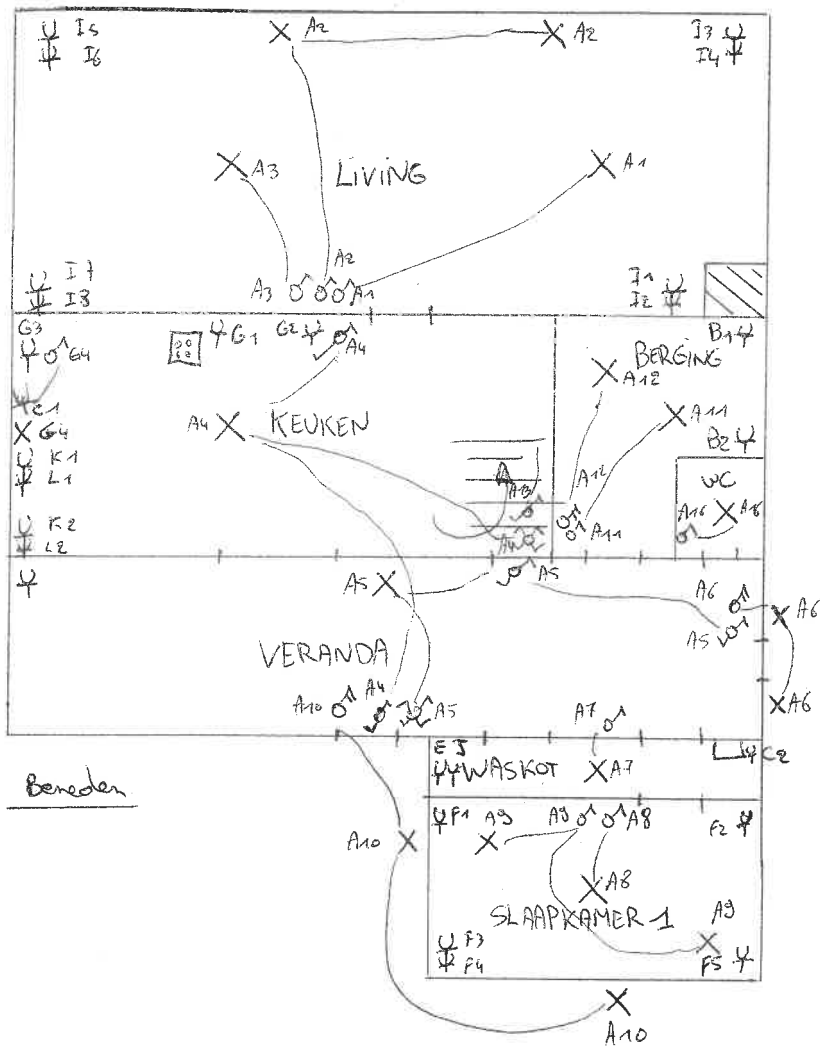 I5
I6
A2
A2
I3
I4
A3
LIVING
A1
A2
A3
A1
I7
I8
I1
I2
G3
G4
G1
G2
A4
B1
BERGING
A12
A11
C1
G4
A4
KEUKEN
B2
K1
L1
WC
A13
A12
A16
A16
K2
L2
A4
A11
A5
A5
A6
A6
A5
VERANDA
A10
A4
A5
A7
A6
E J
WASKOT
A7
C2
Beneden
F1
A9
A9
A8
F2
A10
A8
SLAAPKAMER 1
A9
F3
F4
F5
A10